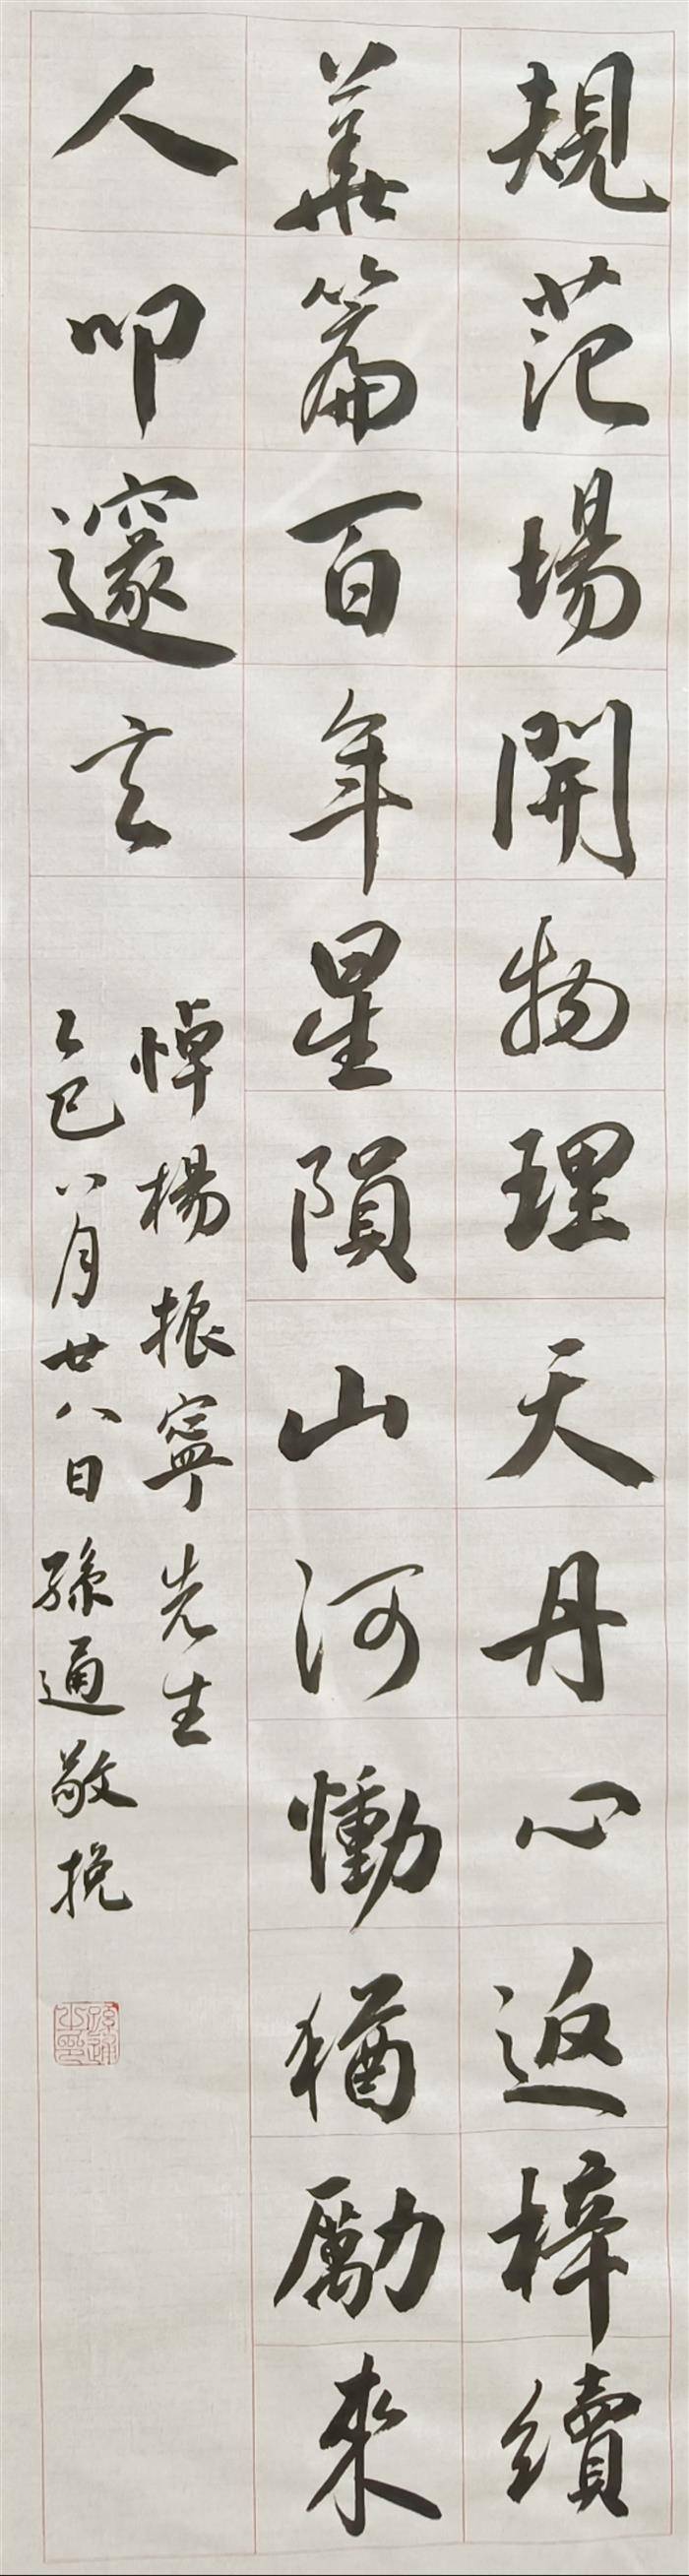 規范場開物理天丹心返梓續
華篇百年星隕山河慟猶勵來
人叩邃玄
悼楊振寧先生
乙巳八月廿八日孫通敬挽
孫通之印